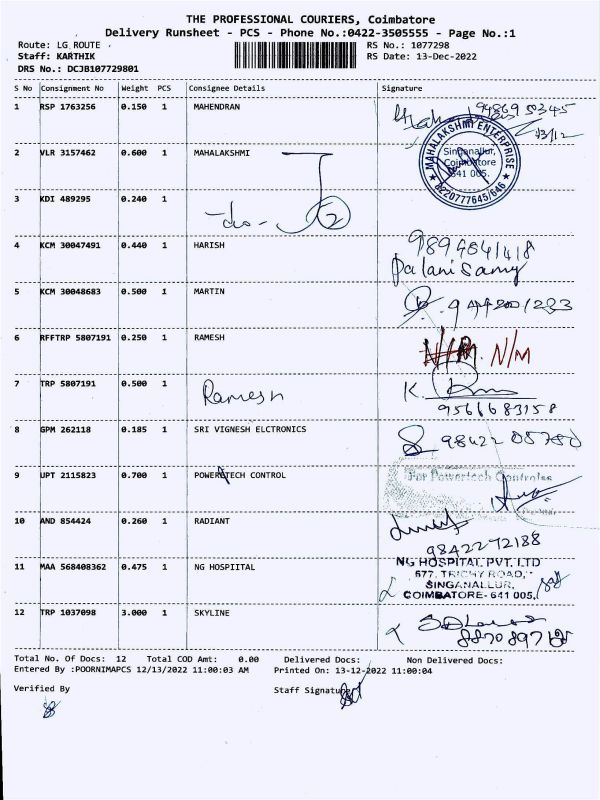 THE PROFESSIONAL COURIERS, Coimbatore
Delivery Runsheet - PCS - Phone No.:0422-3505555 - Page No.:1
Route: LG ROUTE RS No.: 1077298
Staff: KARTHIK RS Date: 13-Dec-2022
DRS No.: DCJB107729801
S No Consignment No Weight PCS Consignee Details Signature
1 RSP 1763256 0.150 1 MAHENDRAN
13/12
2 VLR 3157462 0.600 1 MAHALAKSHMI
MAHALAKSHMI ENTERPRISE
Singanallur,
Coimbatore
641 005.
8220777645/646
3 KDI 489295 0.240 1
-do- 2
4 KCM 30047491 0.440 1 HARISH
Palani Samy
5 KCM 30048683 0.500 1 MARTIN
6 RFFTRP 5807191 0.250 1 RAMESH N/M
7 TRP 5807191 0.500 1 Ramesh K.
9566683158
8 GPM 262118 0.185 1 SRI VIGNESH ELCTRONICS
98422 05750
9 UPT 2115823 0.700 1 POWERTECH CONTROL For Powertech Controles
10 AND 854424 0.260 1 RADIANT
9842272188
11 MAA 568408362 0.475 1 NG HOSPIITAL NG HOSPITAL PVT. LTD
577, TRICHY ROAD,
SINGANALLUR,
COIMBATORE- 641 005.
12 TRP 1037098 3.000 1 SKYLINE
Total No. Of Docs: 12 Total COD Amt: 0.00 Delivered Docs: Non Delivered Docs:
Entered By :POORNIMAPCS 12/13/2022 11:00:03 AM Printed On: 13-12-2022 11:00:04
Verified By Staff Signature